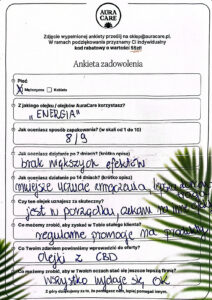 AURA
CARE
Zdjęcie wypełnionej ankiety prześlij na sklep@auracare.pl.
W ramach podziękowania przyznamy Ci indywidualny
kod rabatowy o wartości 50zł!
Ankieta zadowolenia
Płeć
Mężczyzna Kobieta
Z jakiego olejku / olejków AuraCare korzystasz?
"ENERGIA"
Jak oceniasz sposób zapakowania? (w skali od 1 do 10)
8/9
Jak oceniasz działanie po 7 dniach? (krótko opisz)
brak większych efektów
Jak oceniasz działanie po 14 dniach? (krótko opisz)
mniejsze uczucie zmęczenia,
Czy ten olejek uznajesz za skuteczny?
jest w porządku, czekam na
Co możemy zrobić, aby zyskać w Tobie stałego klienta?
regularne promocje na produkty
Co Twoim zdaniem powinniśmy wprowadzić do oferty?
olejki z CBD
Co możemy zrobić, aby w Twoich oczach stać się jeszcze lepszą firmą?
wszystko wydaje się ok
Z góry dziękujemy za to, że pomagasz nam, lepiej pomagać innym.